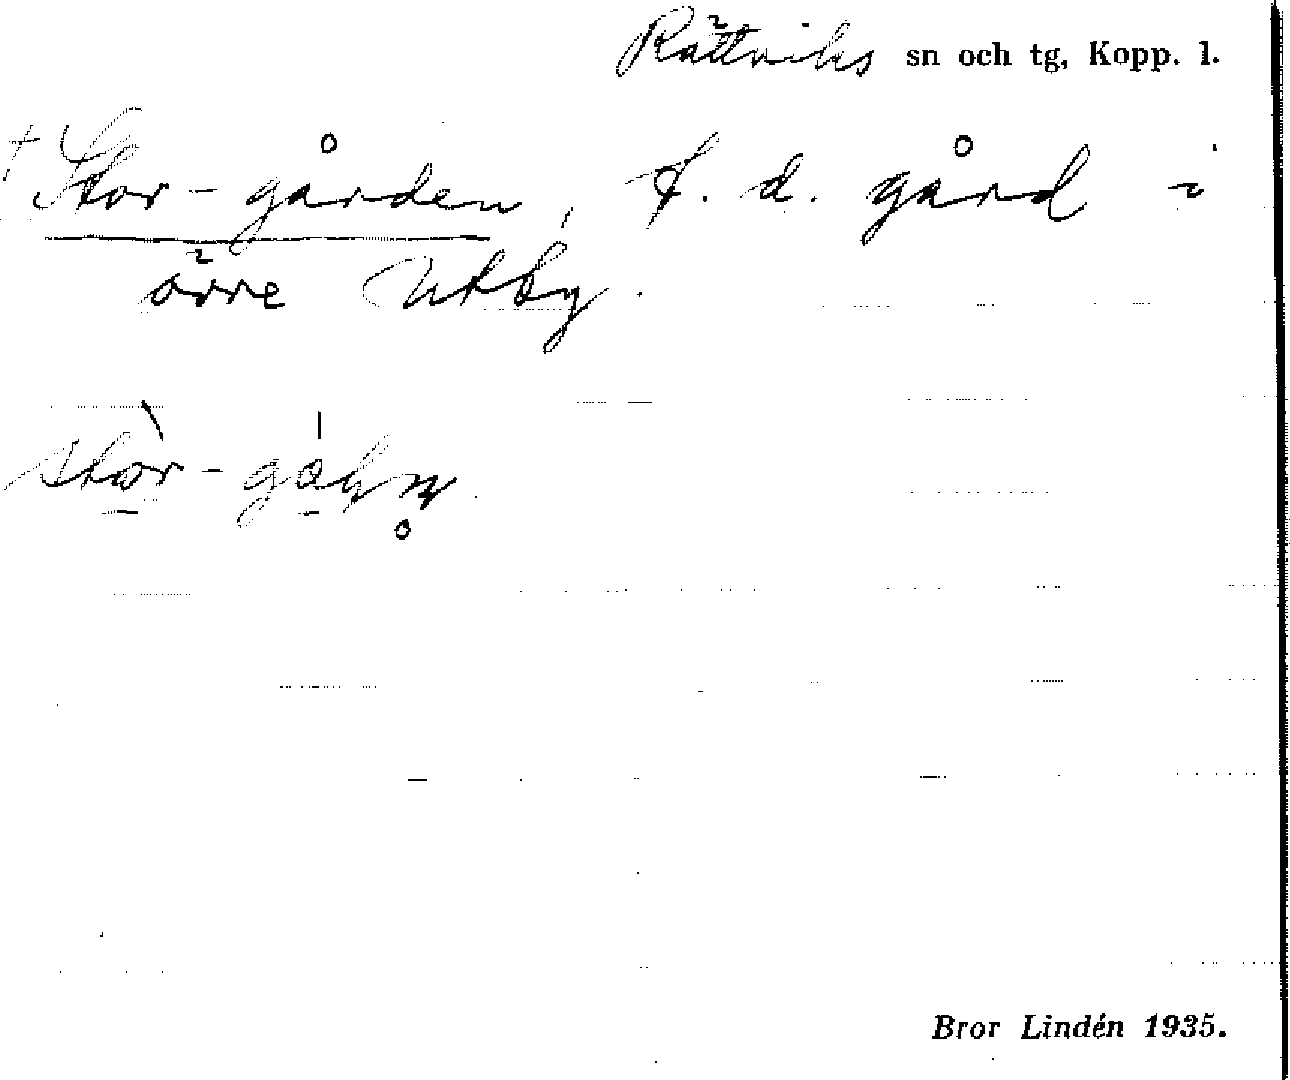 Rättviks sn och tg, Kopp. l.
+ Stor-gården, f. d. gård i
övre Utby.
Bror Lindén 1935.